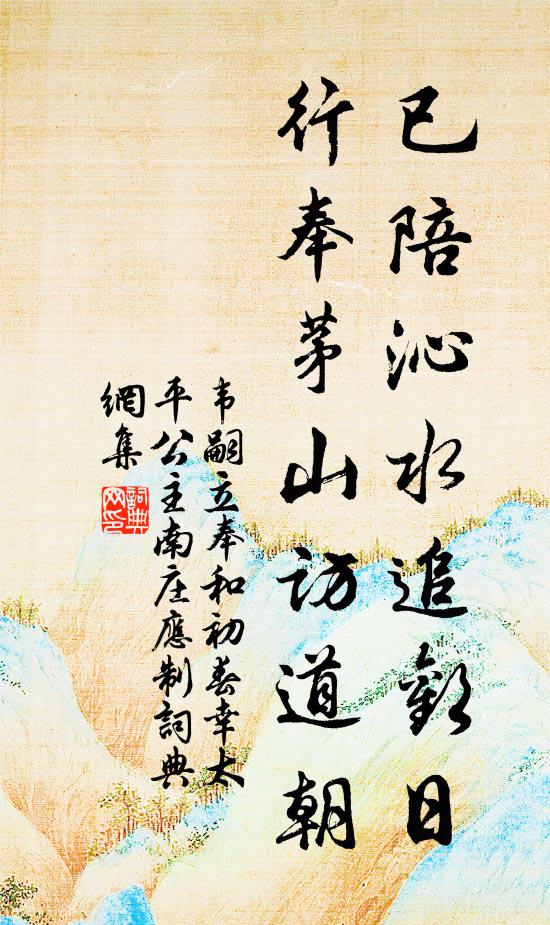 已陪沁水追歡日
行奉茅山訪道朝
韦嗣立奉和初春幸太
平公主南庄應制詞典
網集
詞典
网印